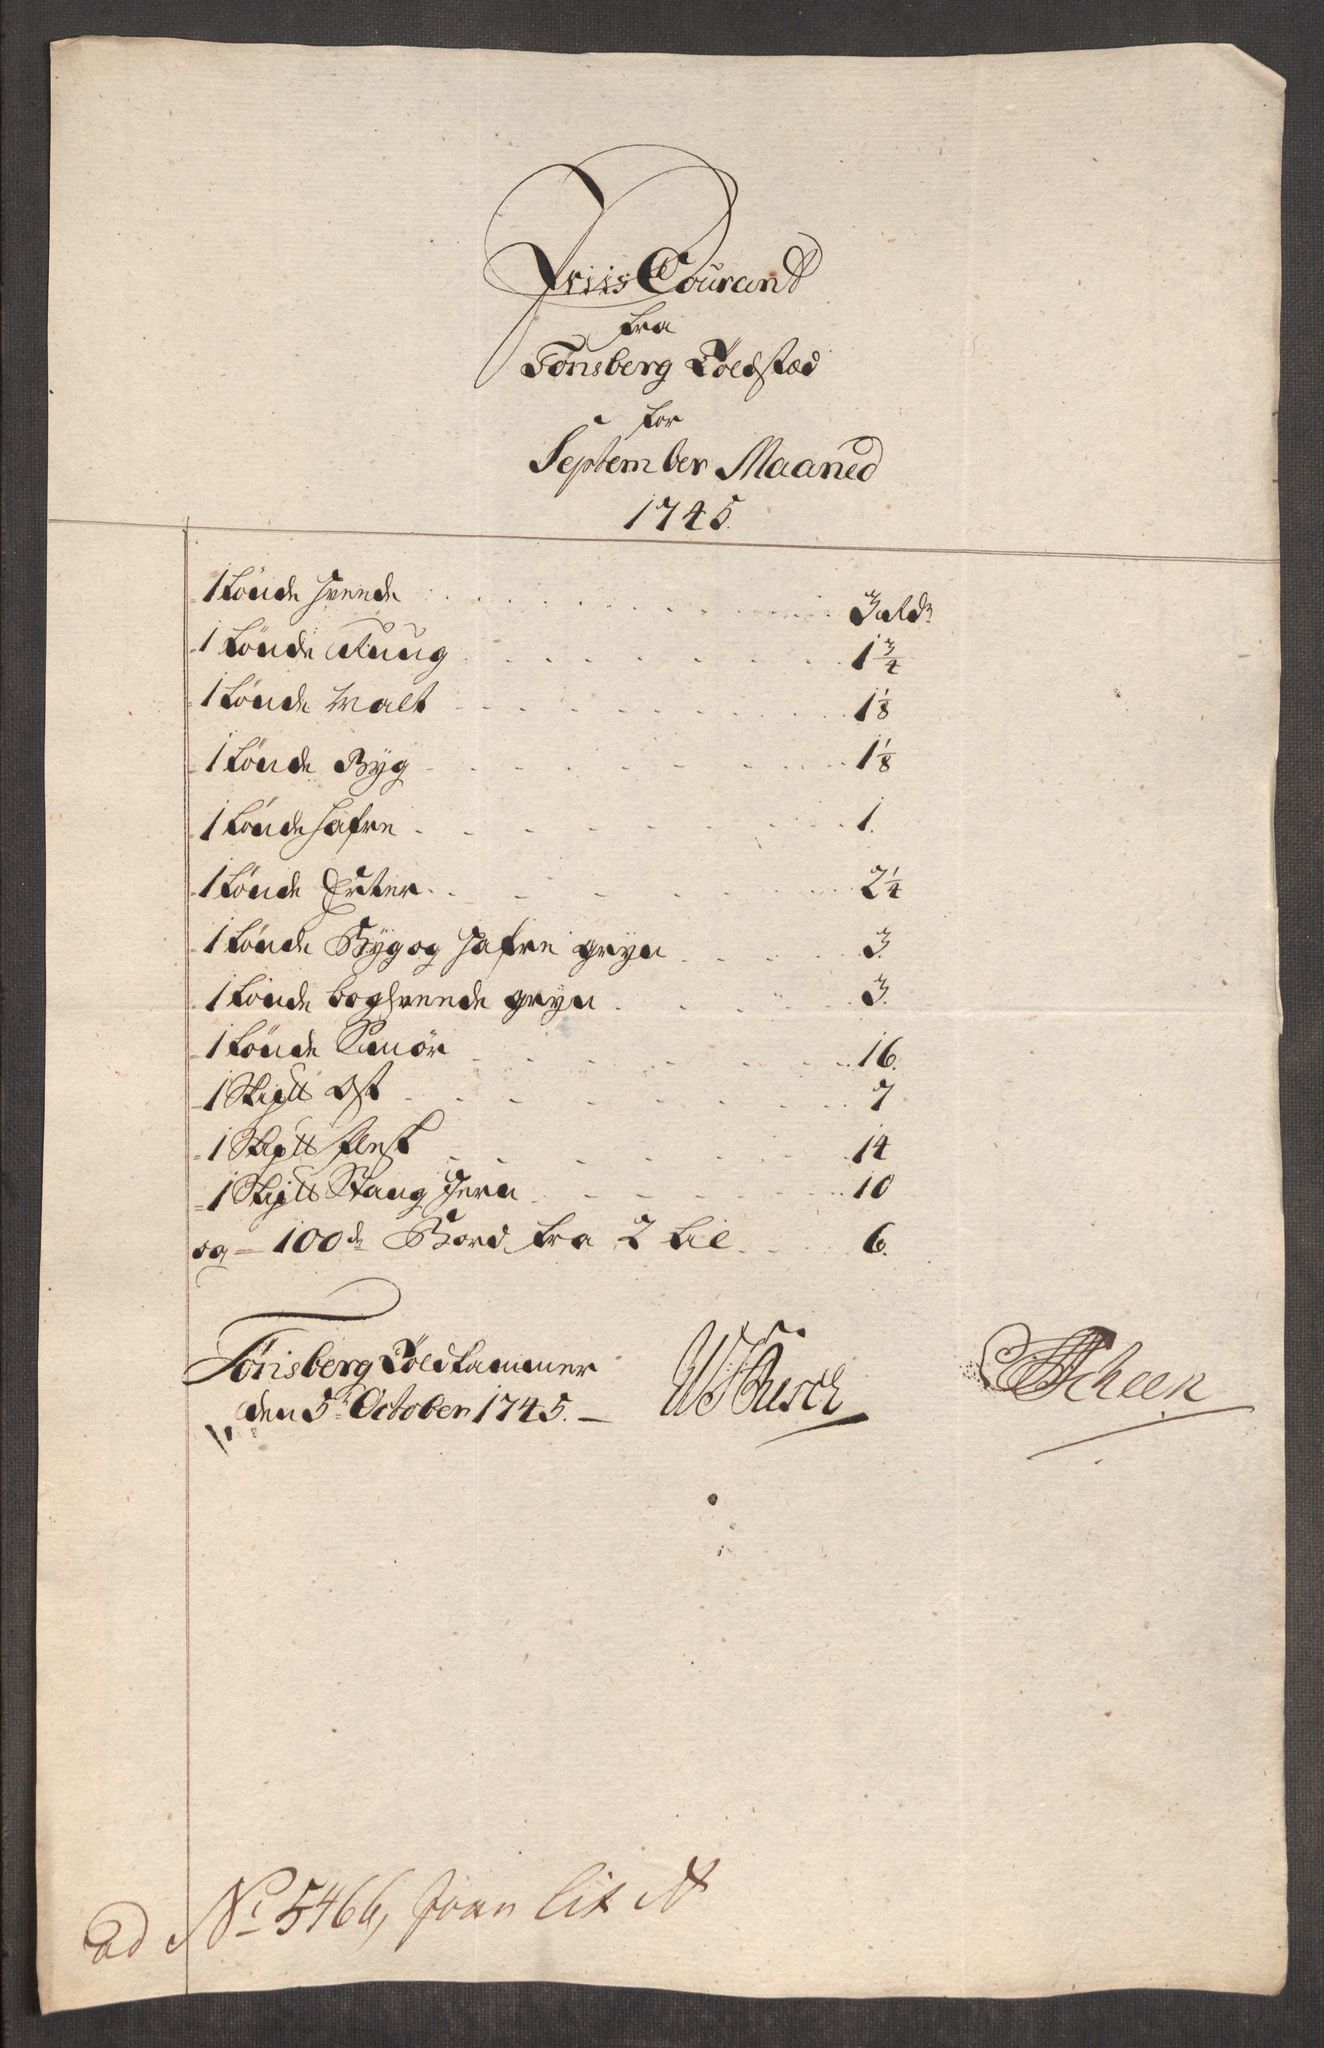 Priis Courant
fra
Tønsberg Toldstæd
for
September Maaned
1745.
1 tønde Hvede . . . 3 Rdr
1 tønde Rug . . . 1 3/4
1 tønde Malt . . . 1 1/8
1 tønde Byg . . . 1 1/8
1 tønde Hafre . . . 1.
1 tønde Erter . . . 2 1/4
1 tønde Byg og Hafre gryn . . . 3
1 tønde boghvede gryn . . . 3.
1 tønde Smør . . . 16.
1 Skip℔ Ost . . . 7
1 Skip℔ flesk . . . 14
1 Skip℔ Stang Jern . . . 10
og 100de Bord fra 2 til . . . 6.
Tønsberg Toldkammer
den 5te October 1745.
Scheen
ad No 5466, Journ lit A